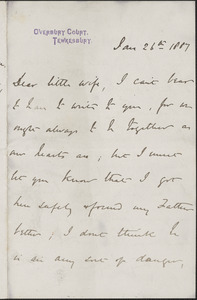 Overbury Court,
Tewkesbury.
Jan 26th 1887
Dear little wife, I can't bear
to have to write to you, for we
ought always to be together as
our hearts are, but I must
let you know that I got
here safely & found my Father
better, I don't think he
is in any sort of danger,